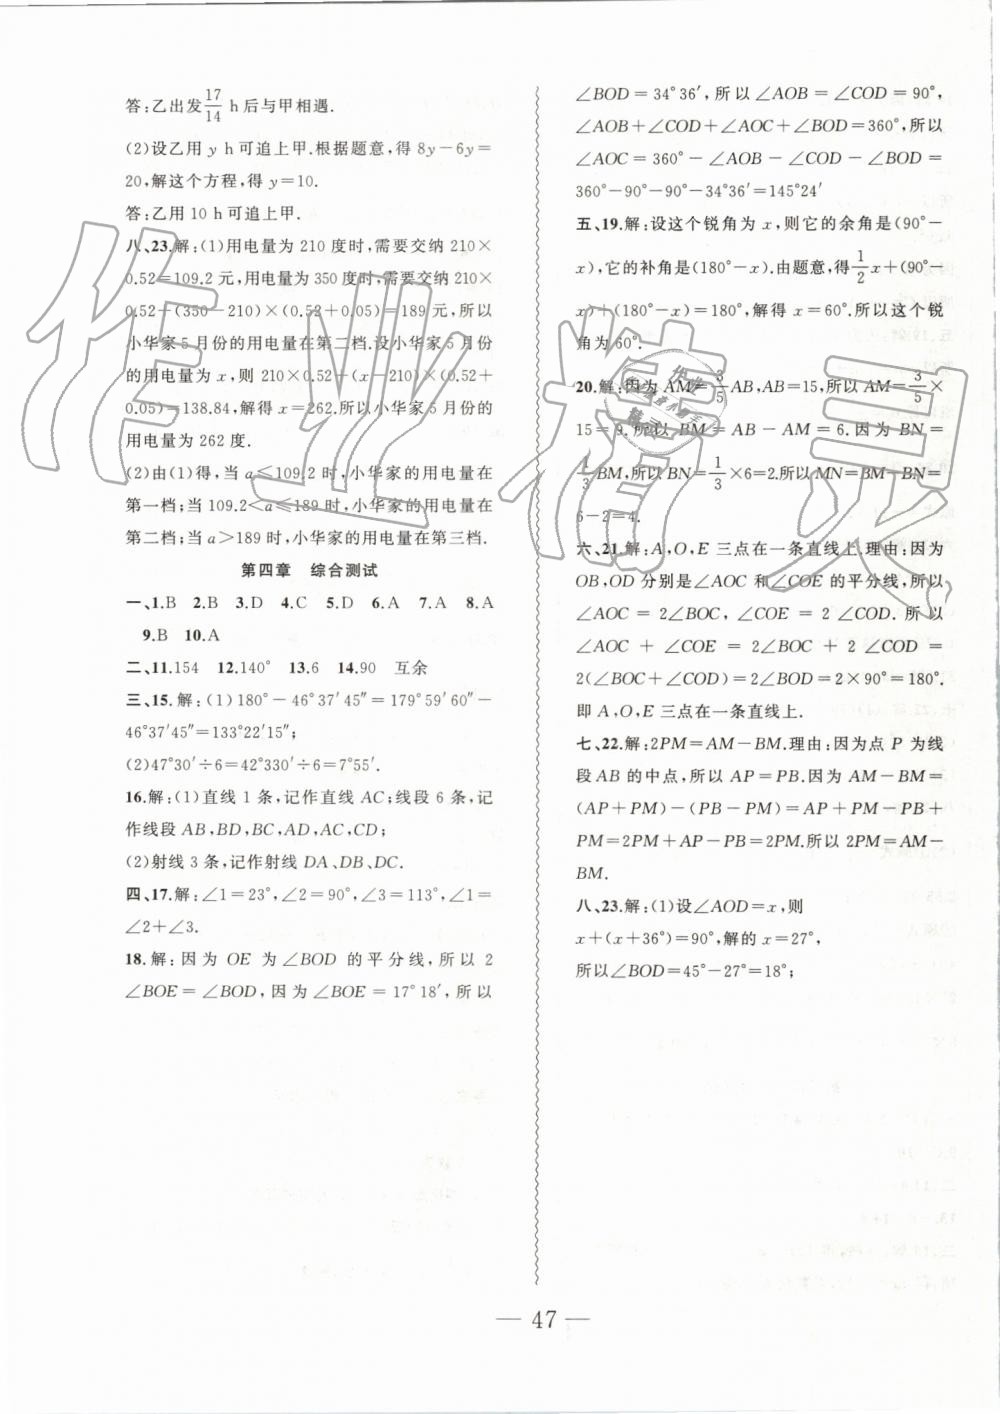 答:乙出发17/14 h后与甲相遇.
(2)设乙用 y h可追上甲.根据题意,得 8y－6y＝
20,解这个方程,得 y＝10.
答:乙用 10 h可追上甲.
八、23.解:(1)用电量为 210 度时,需要交纳 210×
0.52＝109.2 元,用电量为 350度时,需要交纳 210×
0.52＋(350－210)×(0.52＋0.05)＝189元,所以
小华家5月份的用电量在第二档.设小华家5月份
的用电量为 x,则 210×0.52＋(x－210)×(0.52＋
0.05)＝138.84,解得 x＝262.所以小华家5月份的
用电量为 262 度.
(2)由(1)得,当 a≤109.2 时,小华家的用电量在
第一档;当 109.2<a≤189时,小华家的用电量在
第二档;当a>189时,小华家的用电量在第三档.
第四章 综合测试
一、1.B 2.B 3.D 4.C 5.D 6.A 7.A 8.A
9.B 10.A
二、11.154 12.140° 13.6 14.90 互余
三、15.解:(1)180°－46°37′45″＝179°59′60″－
46°37′45″＝133°22′15″;
(2)47°30′÷6＝42°330′÷6＝7°55′.
16.解:(1)直线 1 条,记作直线 AC;线段 6 条,记
作线段 AB,BD,BC,AD,AC,CD;
(2)射线 3 条,记作射线 DA、DB、DC.
四、17.解:∠1＝23°,∠2＝90°,∠3＝113°,∠1＝
∠2＋∠3.
18.解:因为 OE 为∠BOD 的平分线,所以 2
∠BOE＝∠BOD,因为∠BOE＝17°18′,所以
∠BOD＝34°36′,所以∠AOB＝∠COD＝90°,
∠AOB＋∠COD＋∠AOC＋∠BOD＝360°,所以
∠AOC＝360°－∠AOB－∠COD－∠BOD＝
360°－90°－90°－34°36′＝145°24′
五、19.解:设这个锐角为 x,则它的余角是(90°－
x),它的补角是(180°－x).由题意,得1/2x＋(90°－
x)＋(180°－x)＝180°,解得 x＝60°.所以这个锐
角为 60°.
20.解:因为 AM＝3/5AB,AB＝15,所以 AM＝3/5×
15＝9.所以 BM＝AB－AM＝6.因为 BN＝
1/3BM,所以BN＝1/3×6＝2.所以MN＝BM－BN＝
6－2＝4.
六、21.解:A,O,E 三点在一条直线上.理由:因为
OB,OD 分别是∠AOC 和∠COE 的平分线,所以
∠AOC＝2∠BOC,∠COE＝2∠COD.所以
∠AOC＋∠COE＝2∠BOC＋2∠COD＝
2(∠BOC＋∠COD)＝2∠BOD＝2×90°＝180°.
即 A,O,E 三点在一条直线上.
七、22.解:2PM＝AM－BM.理由:因为点 P 为线
段 AB 的中点,所以 AP＝PB.因为 AM－BM＝
(AP＋PM)－(PB－PM)＝AP＋PM－PB＋
PM＝2PM＋AP－PB＝2PM.所以 2PM＝AM－
BM.
八、23.解:(1)设∠AOD＝x,则
x＋(x＋36°)＝90°,解的 x＝27°,
所以∠BOD＝45°－27°＝18°;
— 47 —
作业精灵